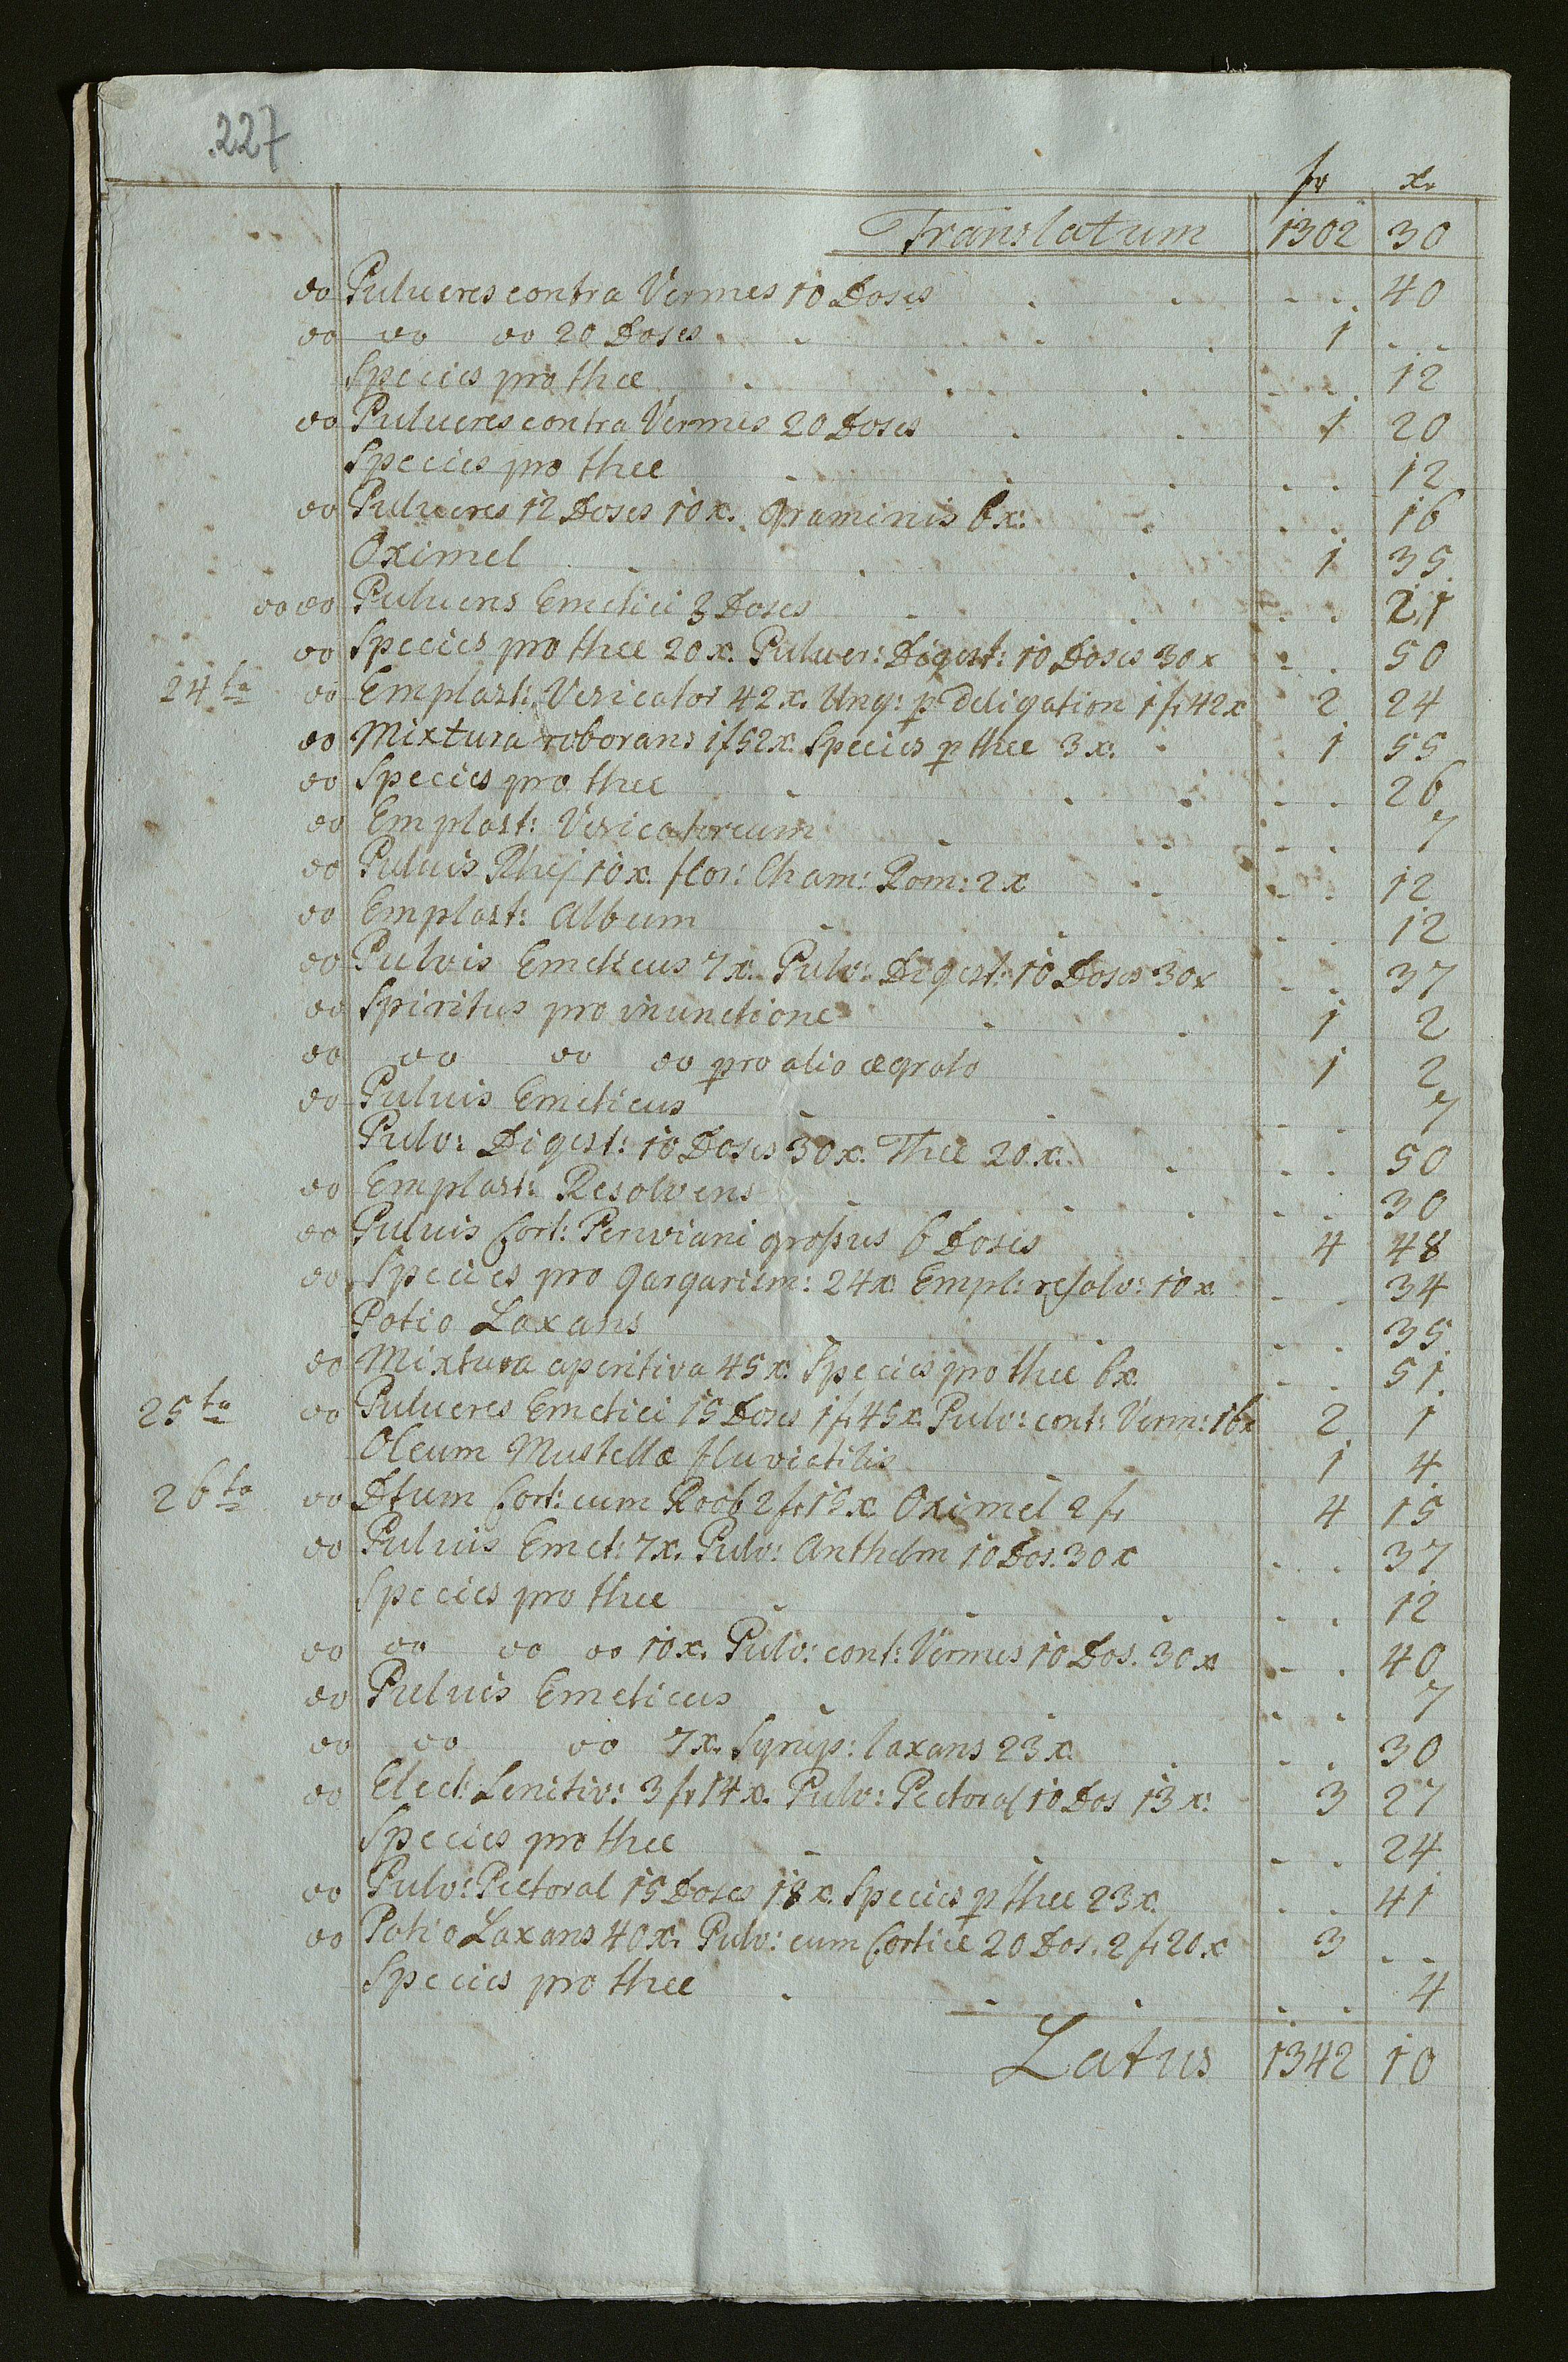 .227
fr xr
Translatum 1302 30
do Pulveres contra Vermes 10 Doses . . . 40
do do do 20 Doses . . . 1 . . .
Species pro thee . . . 12
do Pulveres contra Vermes 20 Doses . . 1 20
Species pro thee . . . 12
do Pulveres 12 Doses 10x. Graminis 6x: . . . 16
Oximel . . . 1 35
do do Pulveris Emetici 3 Doses . . . 21
do Species pro thee 20x. Pulver: Digest: 10 Doses 30x . . 50
24ta do Emplast: Vesicator 42x. Ung: p deligation 1fr 42x 2 24
do Mixtura roborans 1f 52x: Species p thee 3x: . 1 55
do Species pro thee . . . 26
do Emplast: Vesicatoreum . . . 7
do Pulvis Rhej 10x. flor: Cham: Rom: 2x . . . 12
do Emplast: Album . . . 12
do Pulvis Emeticus 7x. Pulv: Digest: 10 Doses 30x . . 37
do Spiritus pro inunctione . . 1 2
do do do do pro alio ægroto 1 2
do Pulvis Emeticus . . . 7
Pulv: Digest: 10 Doses 30x. Thee 20x. . . . 50
do Emplast: Resolvens . . . 30
do Pulvis Cort: Peruviani grossus 6 Doses 4 48
do Species pro Gargarism: 24x: Empl: resolv: 10x . . 34
Potio Laxans . . 35
do Mixtura aperitiva 45x: Species pro thee 6x . . 51
25ta do Pulveres Emetici 15 Doses 1fr 45x. Pulv: cont: Verm: 16x 2 1
Oleum Mustellæ fluviatilis 1 4
26ta do Dtum Cort: cum Roob 2fr 15x Oximel 2fr 4 15
do Pulvis Emet: 7x. Pulv: Anthelm 10 Dos. 30x . . . 37
Species pro thee . . . 12
do do do do 10x. Pulv: cont: Vermes 10 Dos. 30x . . 40
do Pulvis Emeticus . . . 7
do do do 7x. Syrup: laxans 23x. . . . 30
do Elect: Lenitiv: 3fr 14x. Pulv: Pectoral 10 Dos 13x: 3 27
Species pro thee . . . 24
do Pulv: Pectoral 15 Doses 18x. Species p thee 23x. . . 41
do Potio Laxans 40x. Pulv: cum Cortice 20 Dos. 2fr 20x 3 . .
Species pro thee . . . 4
Latus 1342 10